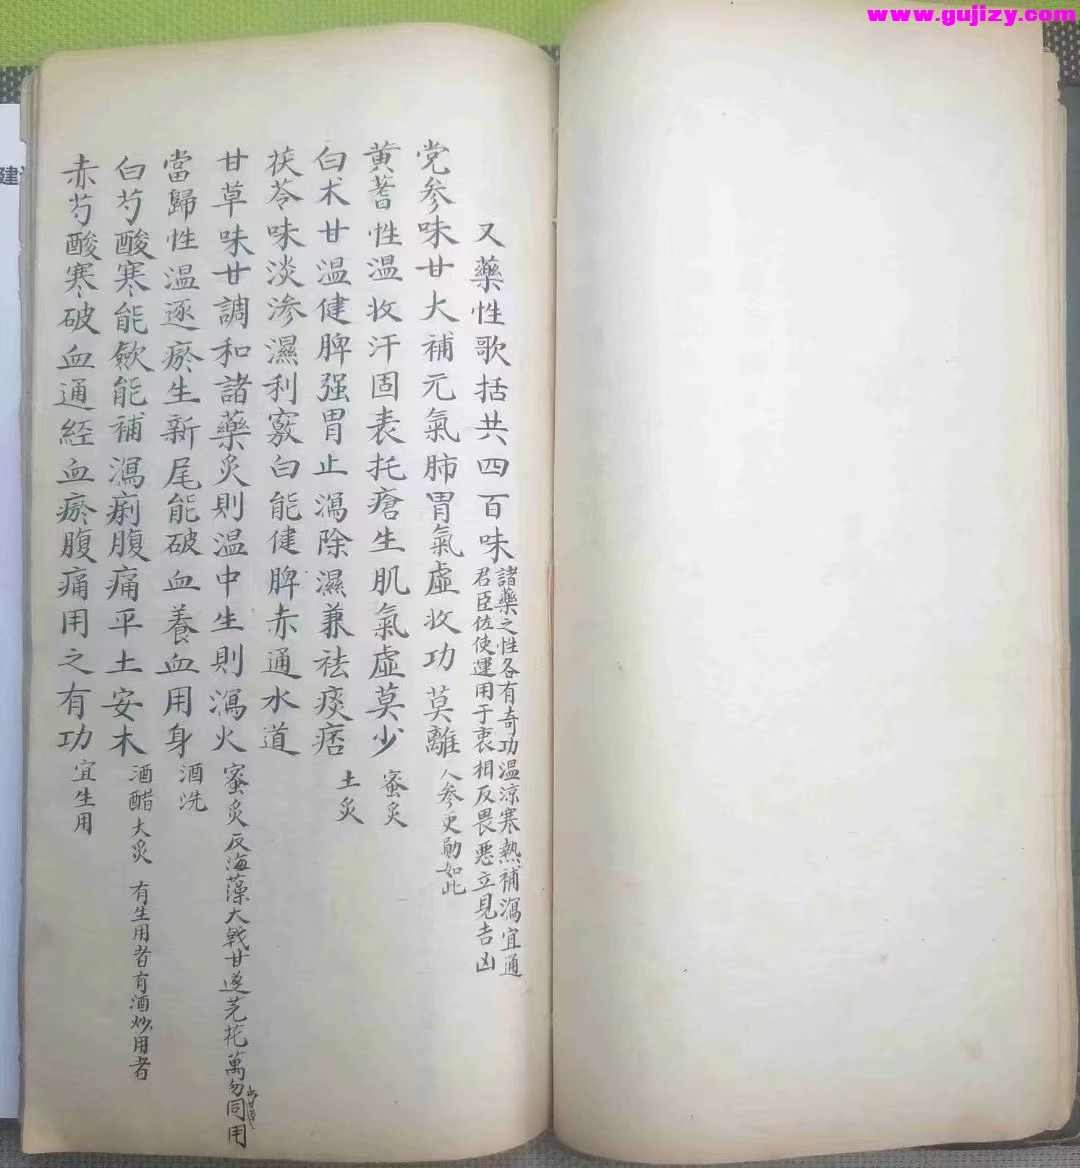 www.gujizy.com
又藥性歌括共四百味
諸藥之性各有奇功温涼寒熱補瀉宜通
君臣佐使運用于衷相反畏惡立見吉凶
党参味甘大補元氣肺胃氣虛收功莫離
人参更勛如此
黄蓍性温收汗固表托瘡生肌氣虛莫少
蜜炙
白术甘温健脾强胃止瀉除濕兼祛痰痞
土炙
茯苓味淡渗濕利竅白能健脾赤通水道
甘草味甘調和諸藥炙則温中生則瀉火
蜜炙反海藻大戟甘遂芫花萬勿同用
當歸性温逐瘀生新尾能破血養血用身
酒洗
白芍酸寒能歛能補瀉痢腹痛平土安木
酒醋大炙 有生用者有酒炒用者
赤芍酸寒破血通經血瘀腹痛用之有功
宜生用
建